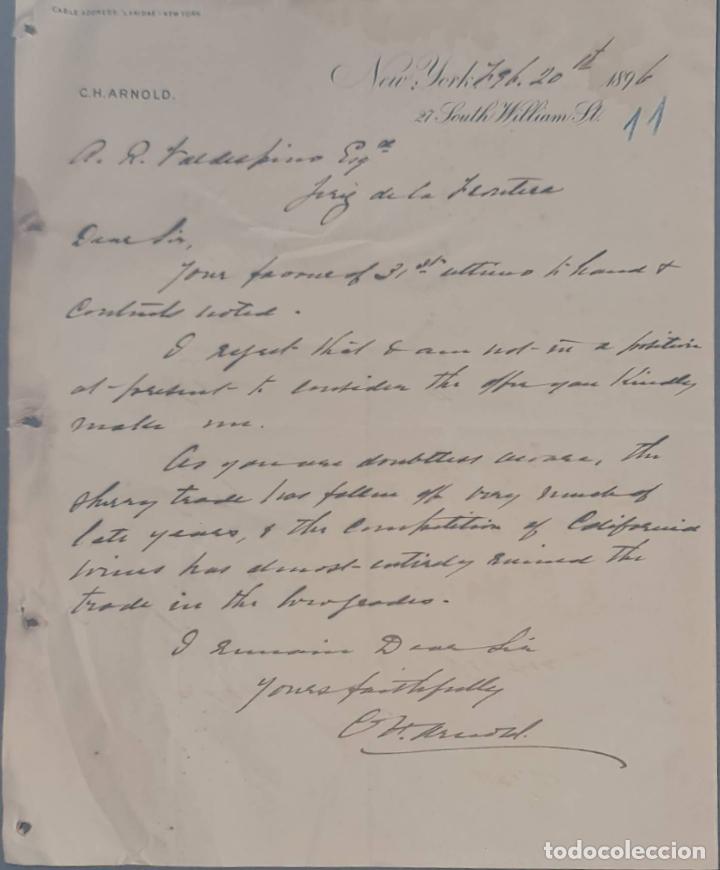 CABLE ADDRESS "LARIDAE" NEW YORK
New York Feb. 20th 1896
C.H. ARNOLD.
27 South William St.
11
A. R. Valdespino Esqre
Jerez de la Frontera
Dear Sir,
Your favour of 31st ultimo to hand &
contents noted.
I regret that I am not in a position
at present to consider the offer you kindly
make me.
As you are doubtless aware, the
sherry trade has fallen off very much of
late years, & the competition of California
wines has almost entirely ruined the
trade in the low grades.
I remain Dear Sir
Yours faithfully
C H. Arnold.
todocoleccion